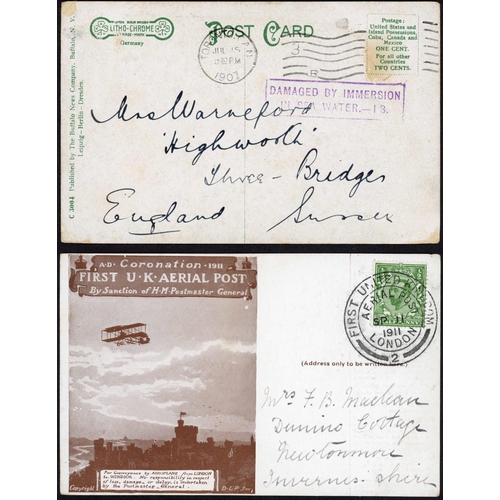 LITHO-CHROME
Germany
POST CARD
Postage:
United States and
Island Possessions,
Cuba, Canada and
Mexico
ONE CENT.
For all other
Countries
TWO CENTS.
JUL 15
PM
1907
3
DAMAGED BY IMMERSION
IN SEA WATER.—13.
C 3004 Published by The Buffalo News Company, Buffalo, N. Y.
Leipzig - Berlin - Dresden.
Mrs Warneford
"Highworth"
Three-Bridges
England Sussex
A.D. Coronation 1911
FIRST U·K·AERIAL POST
By Sanction of H·M·Postmaster General
FIRST UNITED KINGDOM
AERIAL POST
SP 11
1911
LONDON
2
(Address only to be written here.)
Mrs F. B. Maclean
Cottage
Newtonmore
Inverness-shire
For Conveyance by AEROPLANE from LONDON
to WINDSOR. No responsibility in respect
of loss, damage, or delay, is undertaken
by the Postmaster General.
Copyright